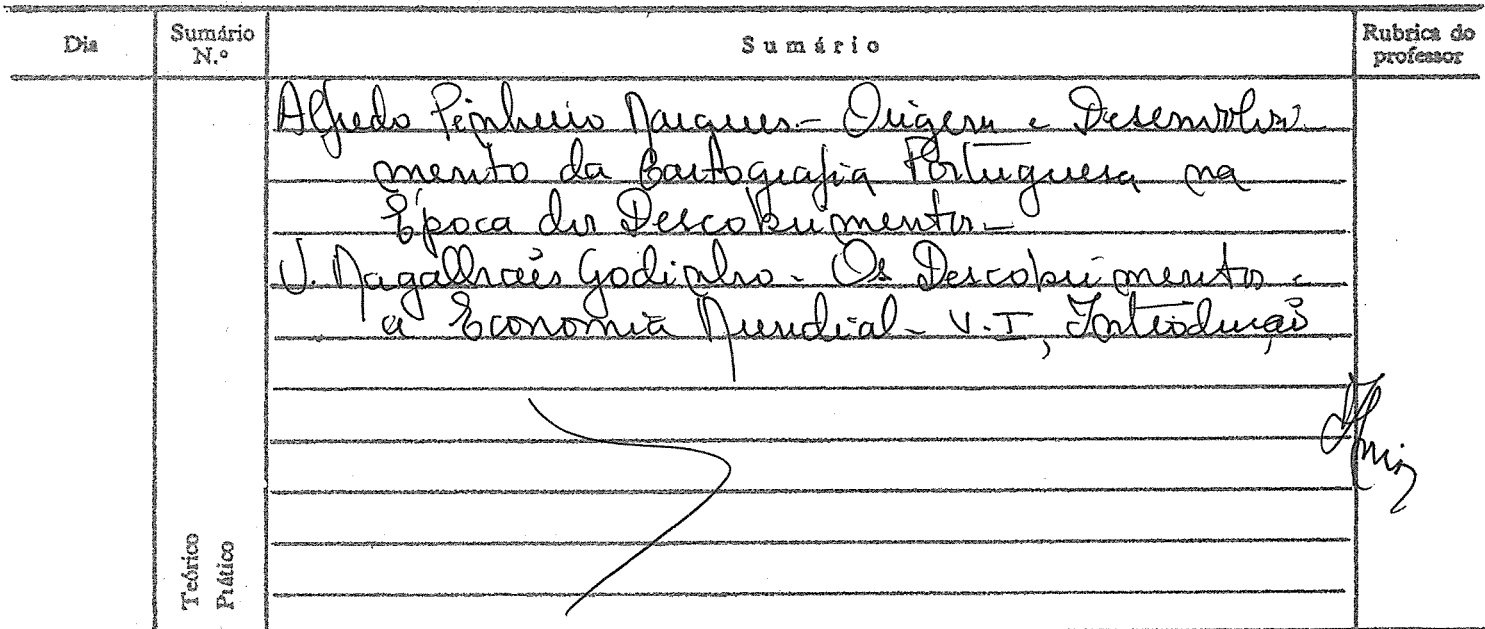 Dia
Sumário N.º
Sumário
Rubrica do professor
Alfredo Pinheiro Marques - Origem e Desenvolvi
mento da Cartografia Portuguesa na
Época dos Descobrimentos -
V. Magalhães Godinho - Os Descobrimentos e
a Economia Mundial - V. I, Introdução
Teórico
Prático